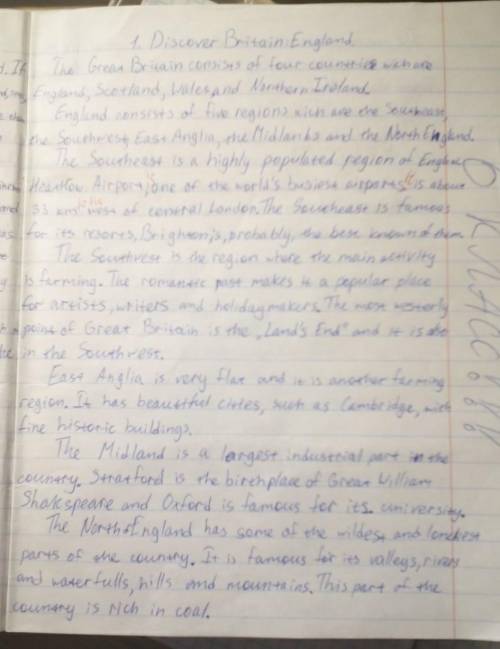 1. Discover Britain: England.
The Great Britain consists of four countries wich are
England, Scotland, Wales and Northern Ireland.
England consists of five regions wich are the Southeast,
the Southwest, East Anglia, the Midlands and the North England.
The Southeast is a highly populated region of England.
Heathow Airport, one of the world's busiest airports is about
33 kms west of central London. The Southeast is famous
for its resorts, Brighton is, probably, the best known of them.
The Southwest is the region where the main activity
is farming. The romantic past makes it a popular place
for artists, writers and holidaymakers. The most westerly
point of Great Britain is the „Land's End" and it is also
in the Southwest.
East Anglia is very flat and it is another farming
region. It has beautiful cities, such as Cambridge, with
fine historic buildings.
The Midland is a largest industrial part in the
country. Stratford is the birthplace of Great William
Shakespeare and Oxford is famous for its university.
The North of England has some of the wildest and loneliest
parts of the country. It is famous for its valleys, rivers
and waterfulls, hills and mountains. This part of the
country is rich in coal.